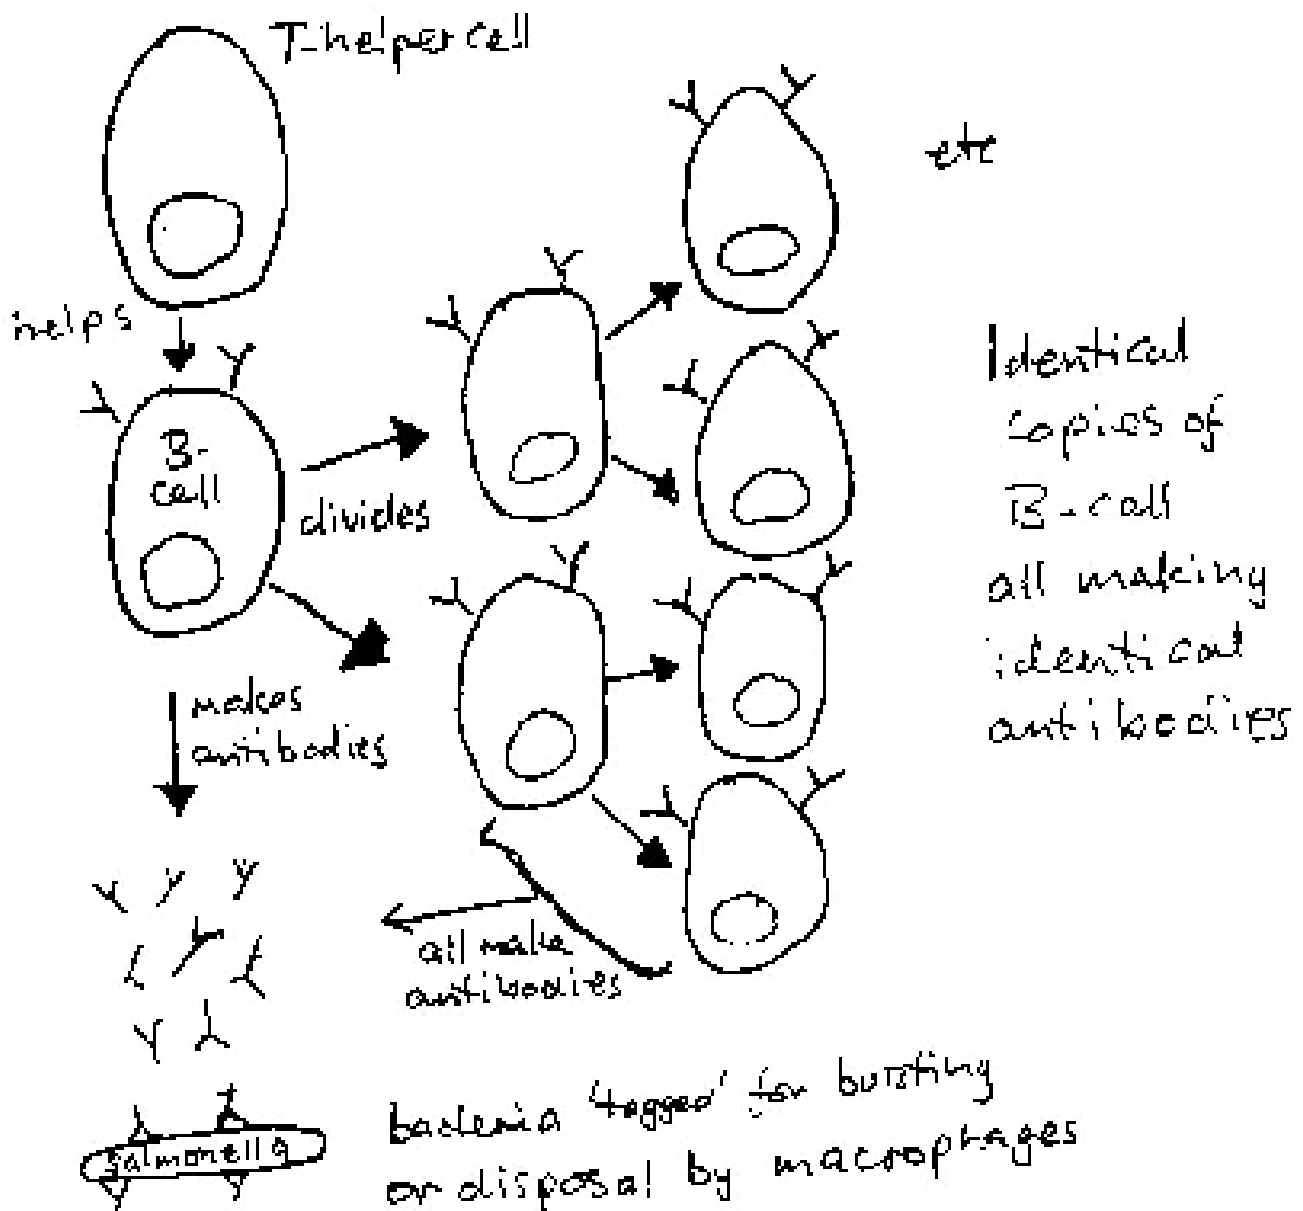 T-helper cell
etc
helps
B-
cell
divides
Identical
copies of
B-cell
all making
identical
antibodies
makes
antibodies
all make
antibodies
bacteria 'tagged' for bursting
or disposal by macrophages
Salmonella